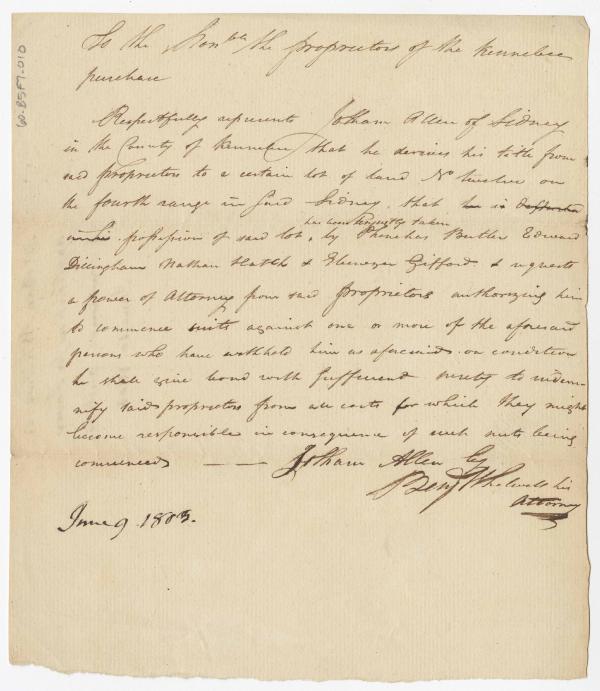 60-85F7-010
To the Honble the proprietors of the Kennebec
purchase
Respectfully represents Jotham Allen of Sidney
in the County of Kennebec that he derives his title from
said proprietors to a certain lot of land No twelve on
the fourth range in said Sidney, that he is disturbed
in his possession of said lot, by Phinehas Butler Edward
has been
taken
Dillingham Nathan Hatch & Ebenezer Gifford & requests
a power of Attorney from said proprietors authorizing him
to commence suits against one or more of the aforesaid
persons who have withheld him as aforesaid on condition
he shall give bond with sufficient surety to indem
nify said proprietors from all costs for which they might
become responsible in consequence of such suits being
commenced — — Jotham Allen by
Benj Whitwell his
Attorney
June 9. 1803.